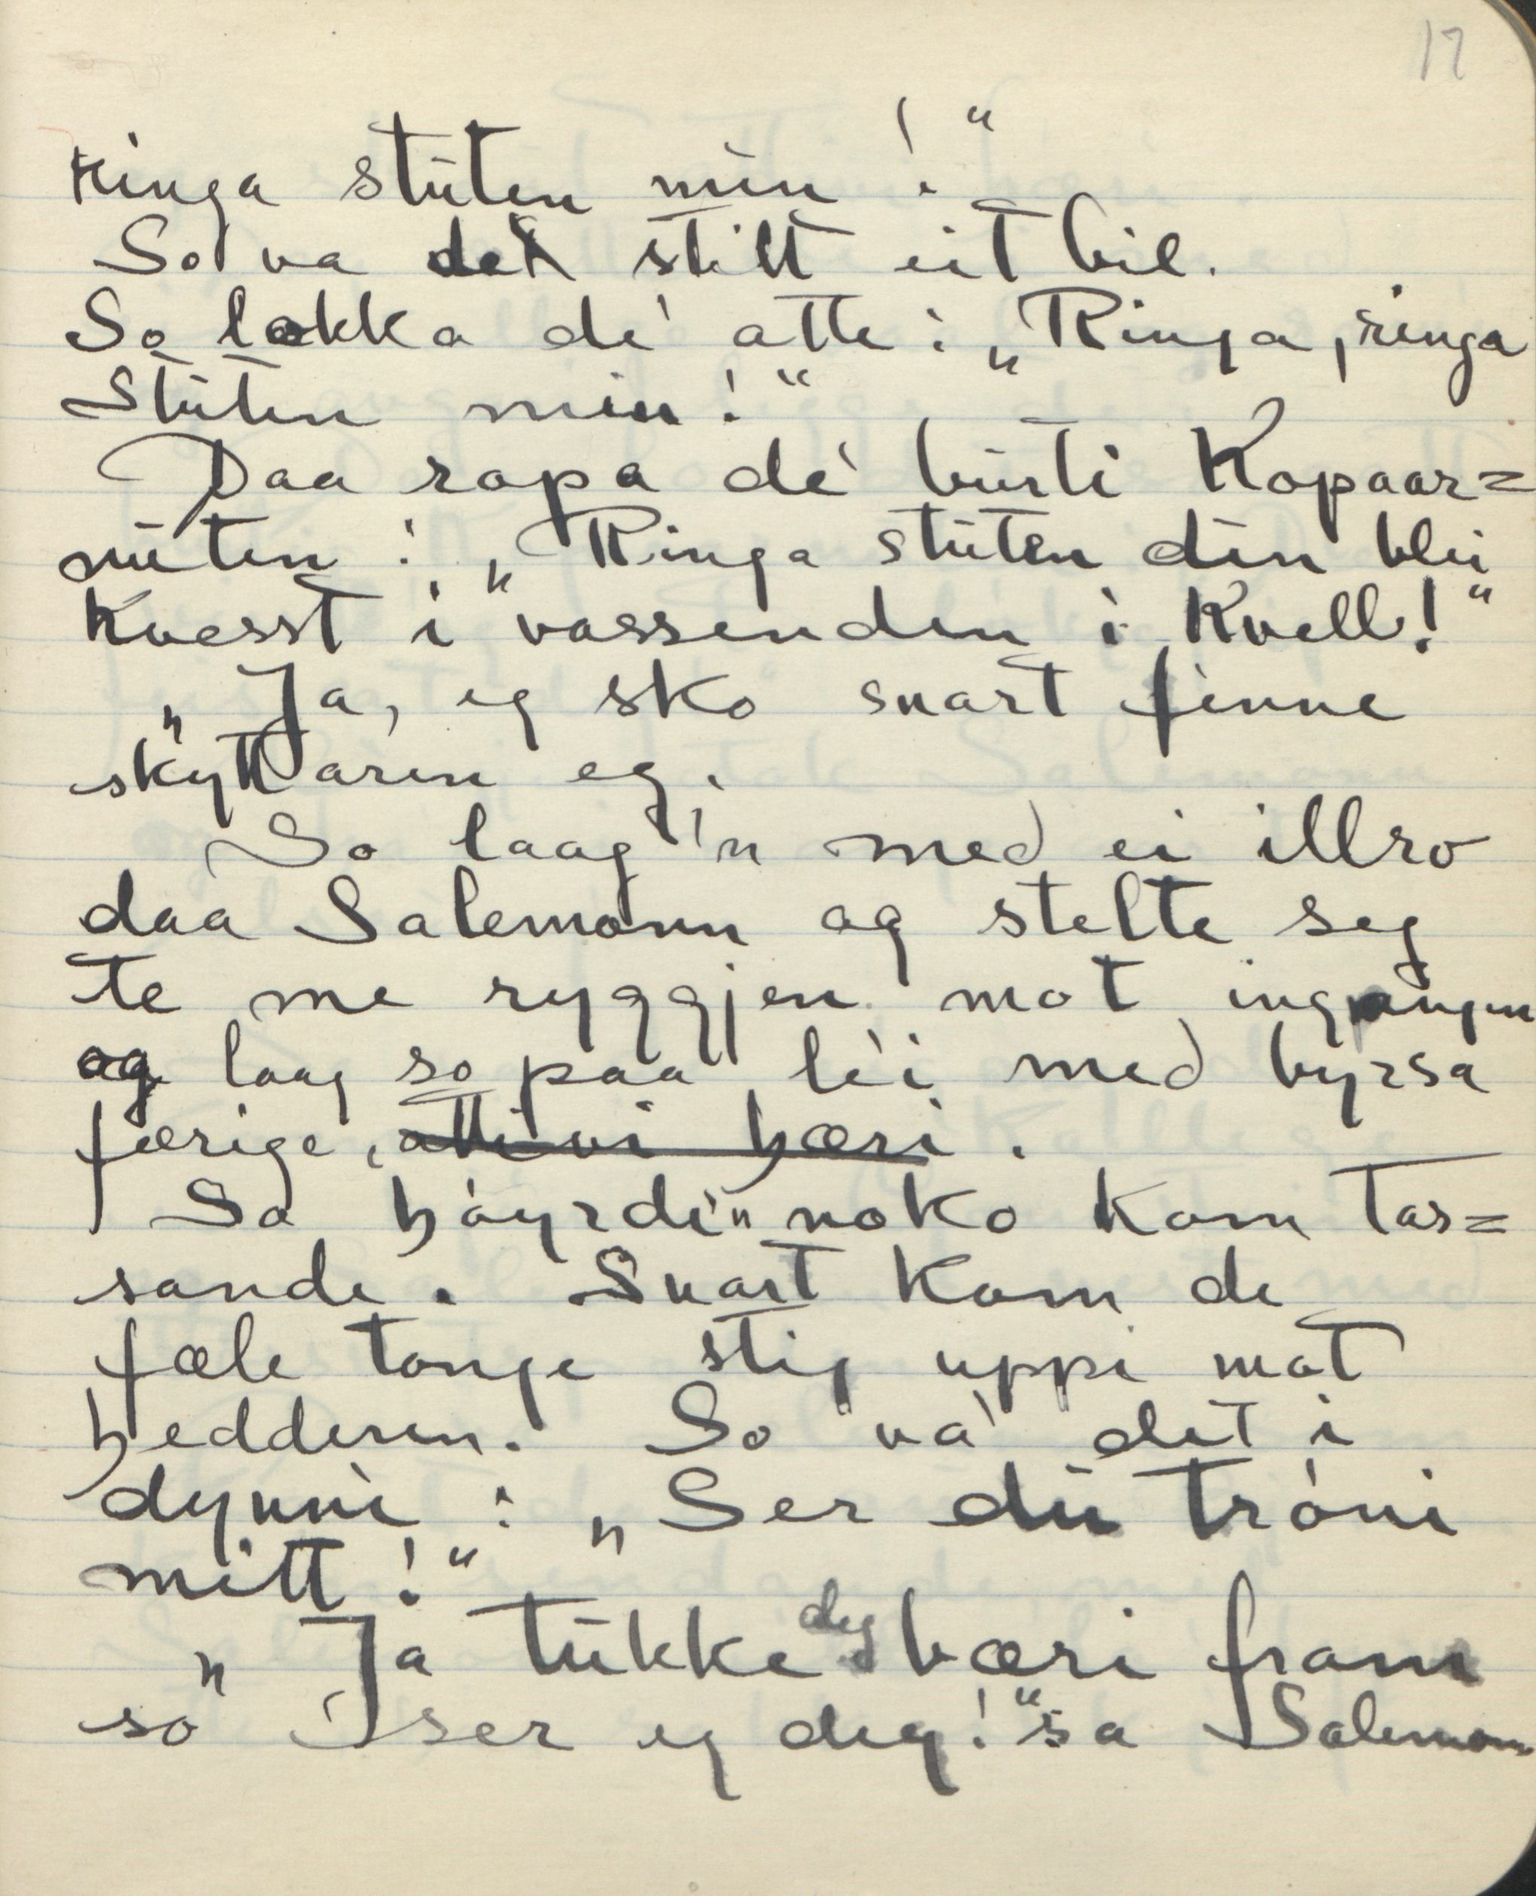 17
Ringa stūten min!"
So va det stilt eit bil.
So lokka de' atte: „Ringa, ringa
stūten min!"
Daa ropa de' būrti Kopaar=
nūten: „Ringa stūten din blei
kvesst i vassenden i kvell!"
„Ja, eg sko snart finne
skyttaren eg.
So laag 'n med ei illro
daa Salemonn og stelte seg
te me ryggjen mot ingangen
og laag so paa lei med byrsa
færige, atti vi hæri.
So høyrdi'n noko kom tas=
sande. Snart kom de
fæle tonge stig uppi mot
hedderen. So va' det i
dynni: „Ser dū tróni
mitt!"
„Ja tūkke deg bæri fram
so ser eg deg!" sa Salemonn